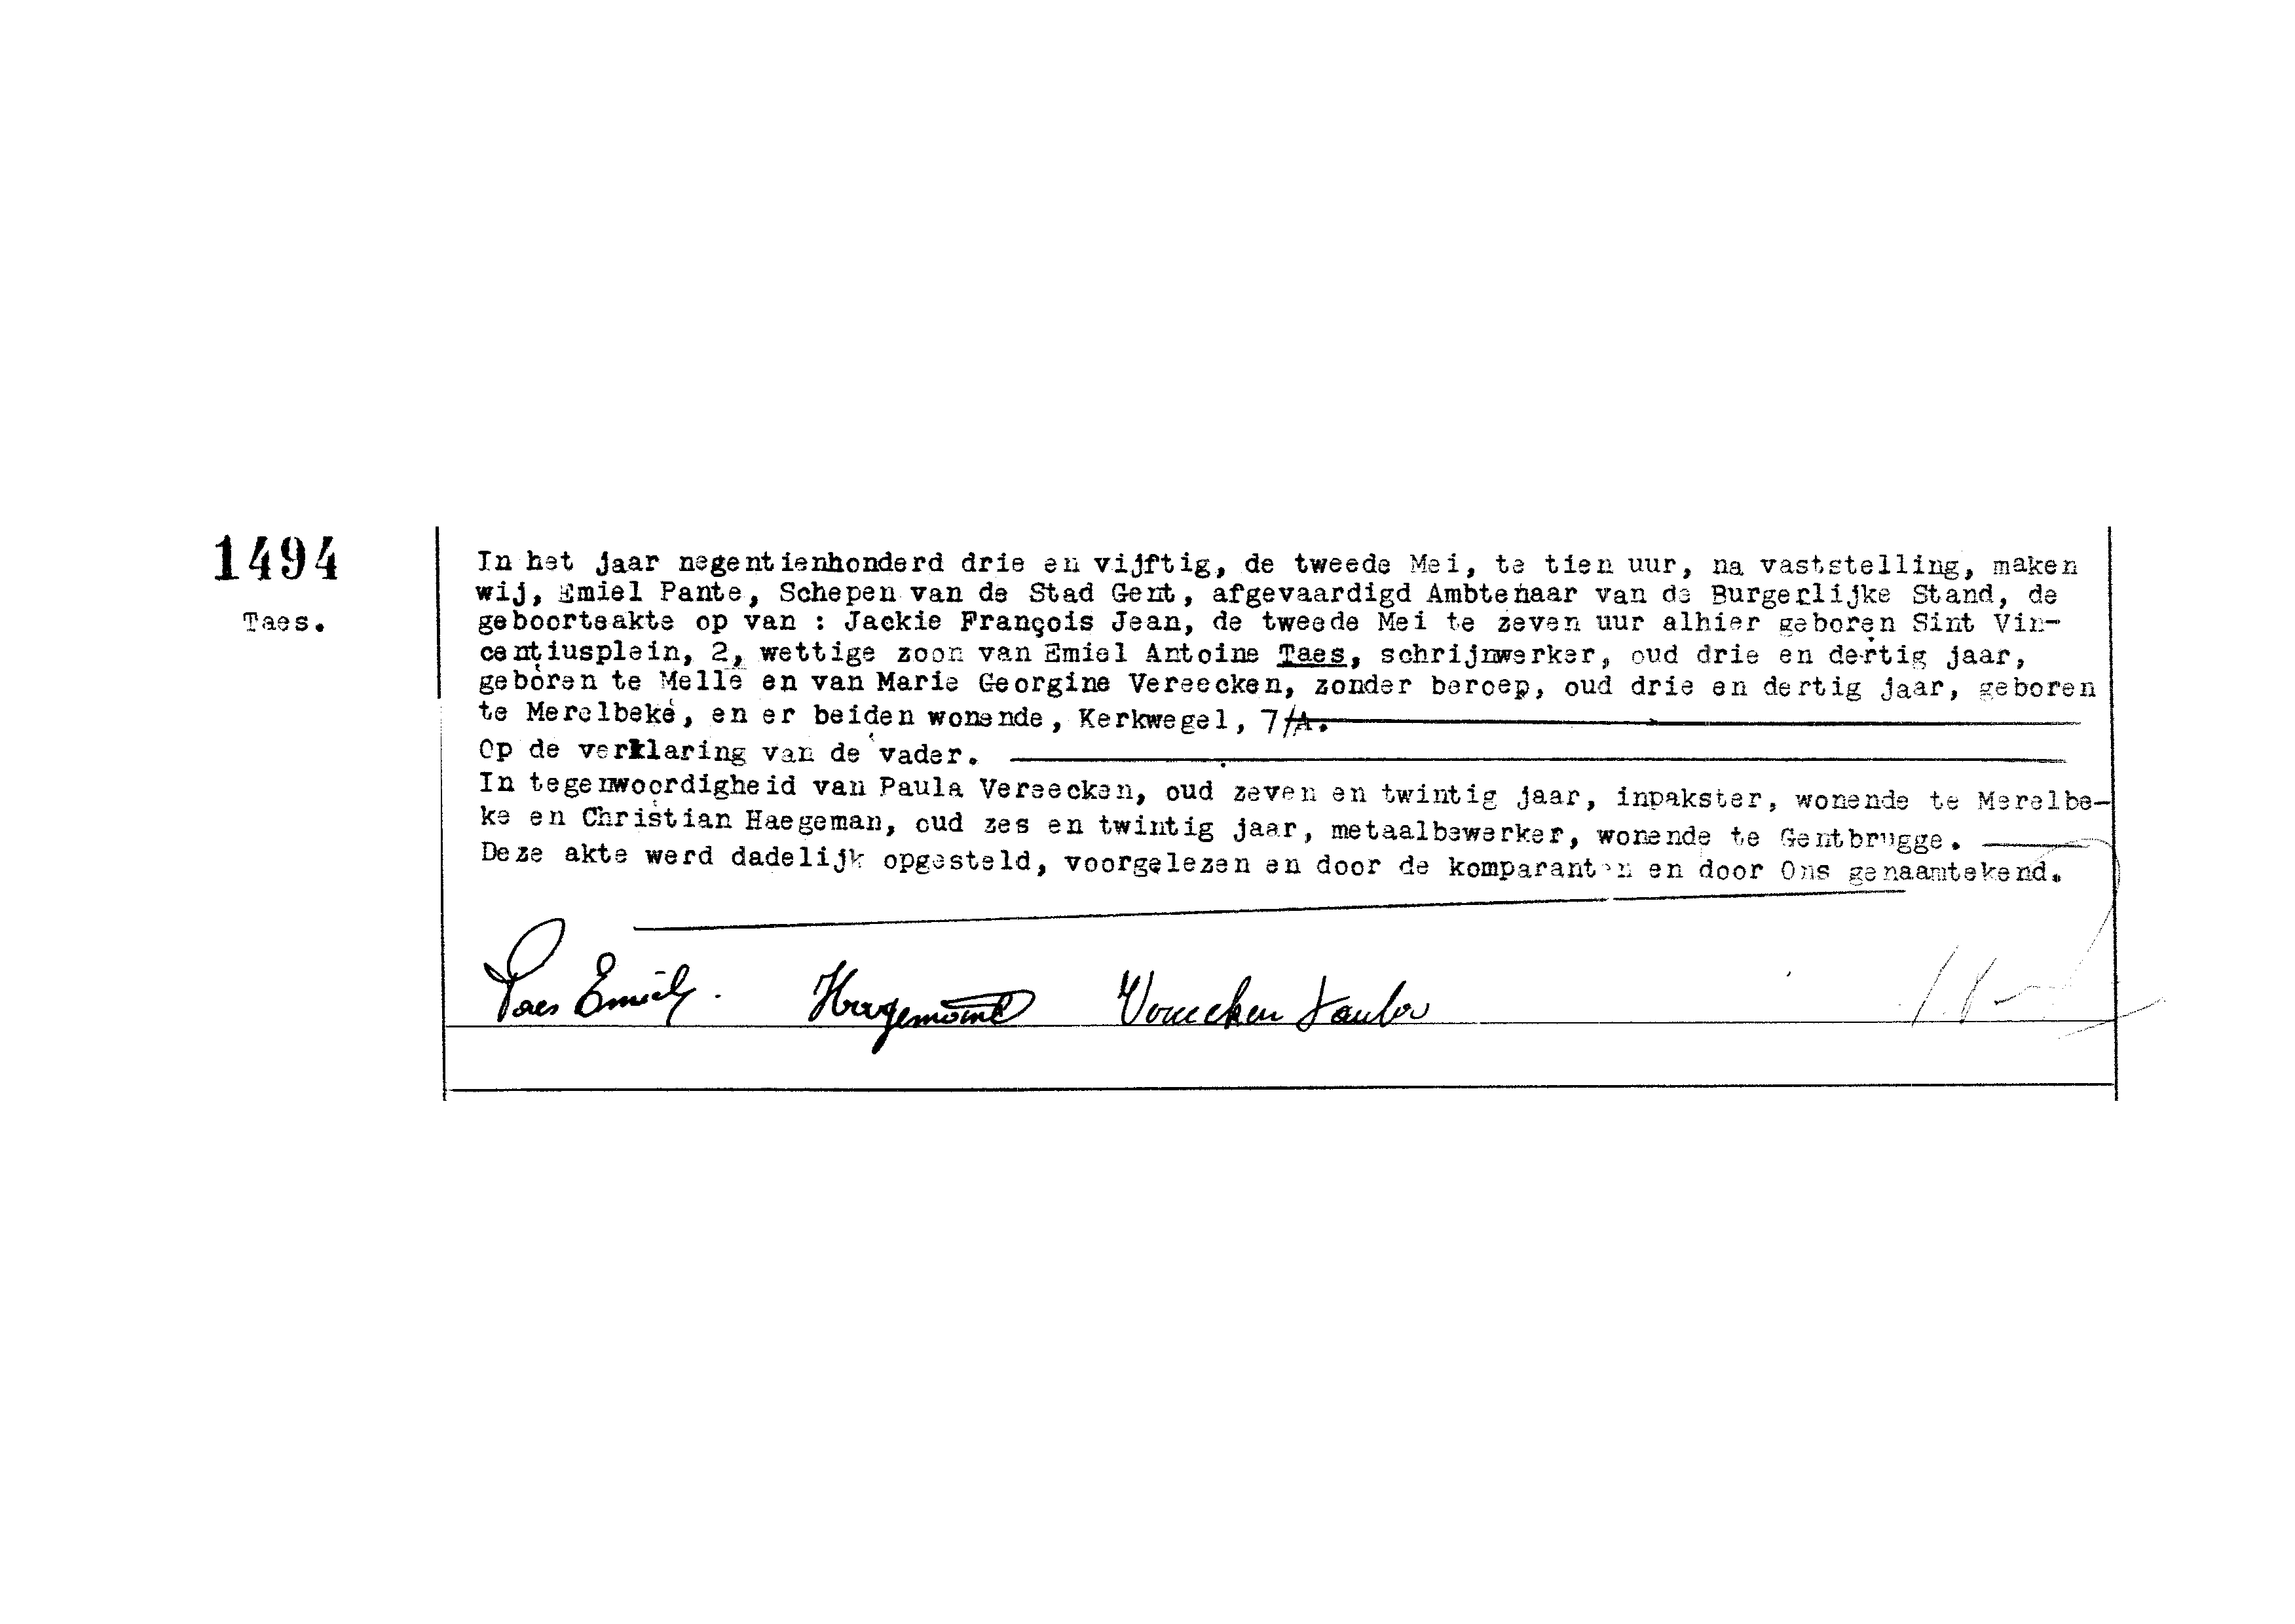 1494
Taes.
In het jaar negentienhonderd drie en vijftig, de tweede Mei, te tien uur, na vaststelling, maken
wij, Emiel Pante, Schepen van de Stad Gent, afgevaardigd Ambtenaar van de Burgerlijke Stand, de
geboorteakte op van : Jackie François Jean, de tweede Mei te zeven uur alhier geboren Sint Vin-
centiusplein, 2, wettige zoon van Emiel Antoine Taes, schrijnwerker, oud drie en dertig jaar,
geboren te Melle en van Marie Georgine Vereecken, zonder beroep, oud drie en dertig jaar, geboren
te Merelbeke, en er beiden wonende, Kerkwegel, 7/A.
Op de verklaring van de vader.
In tegenwoordigheid van Paula Vereecken, oud zeven en twintig jaar, inpakster, wonende te Merelbe-
ke en Christian Haegeman, oud zes en twintig jaar, metaalbewerker, wonende te Gentbrugge.
Deze akte werd dadelijk opgesteld, voorgelezen en door de komparanten en door Ons genaamtekend.
Taes Emiel.